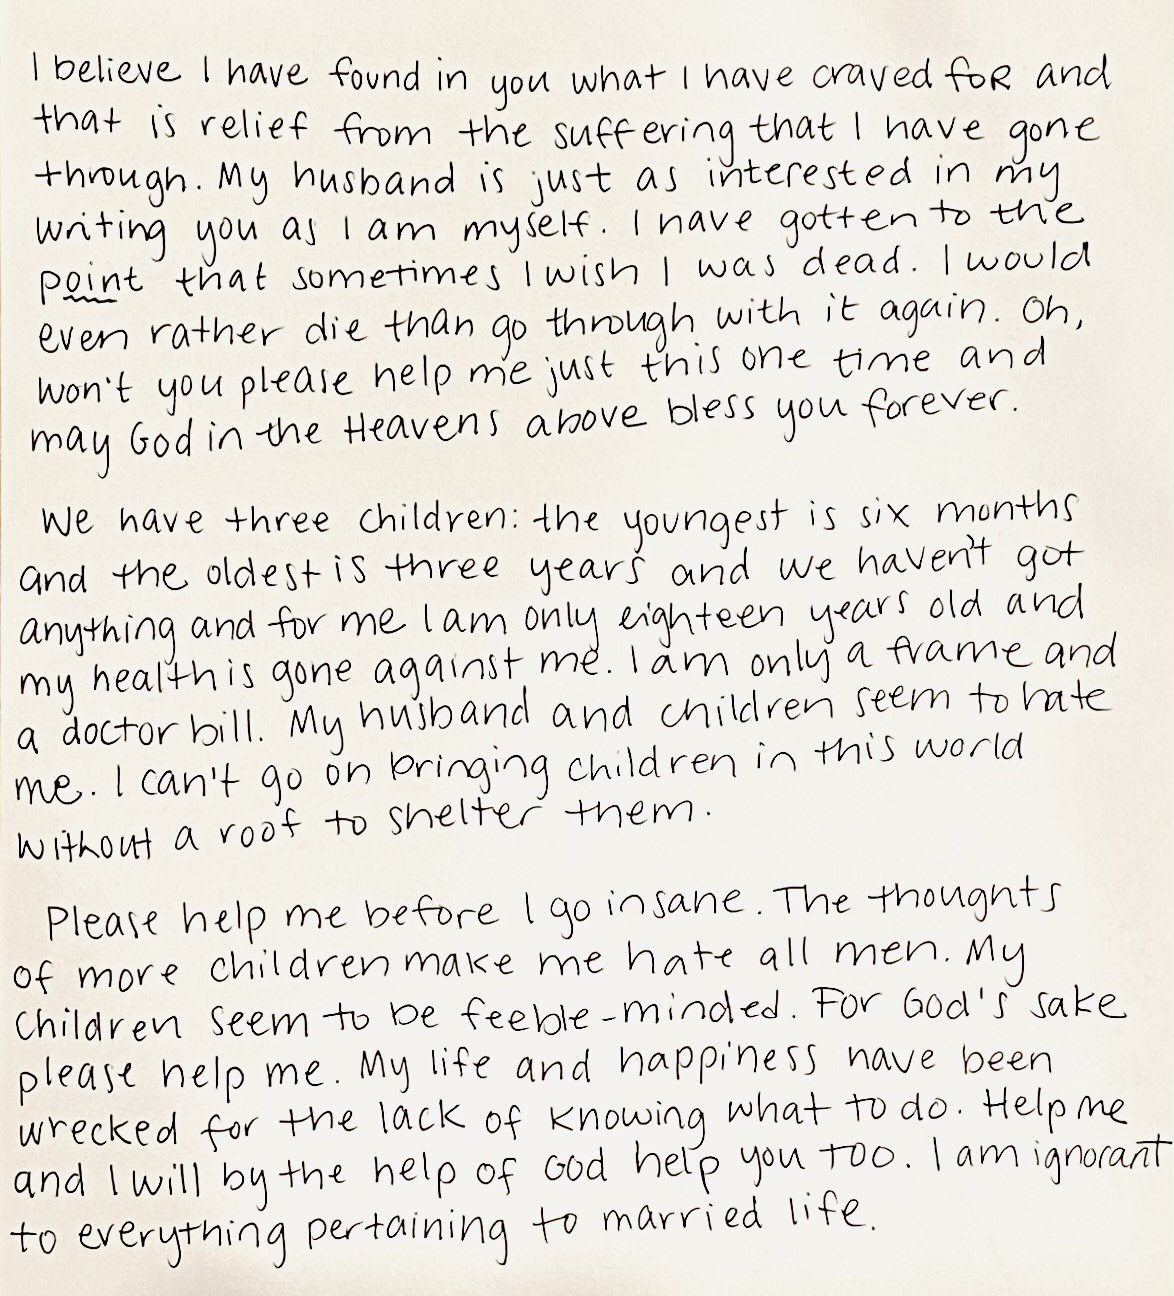 I believe I have found in you what I have craved for and
that is relief from the suffering that I have gone
through. My husband is just as interested in my
writing you as I am myself. I have gotten to the
point that sometimes I wish I was dead. I would
even rather die than go through with it again. Oh,
won't you please help me just this one time and
may God in the Heavens above bless you forever.
We have three children: the youngest is six months
and the oldest is three years and we haven't got
anything and for me I am only eighteen years old and
my health is gone against me. I am only a frame and
a doctor bill. My husband and children seem to hate
me. I can't go on bringing children in this world
without a roof to shelter them.
Please help me before I go insane. The thoughts
of more children make me hate all men. My
children seem to be feeble-minded. For God's sake
please help me. My life and happiness have been
wrecked for the lack of knowing what to do. Help me
and I will by the help of God help you too. I am ignorant
to everything pertaining to married life.